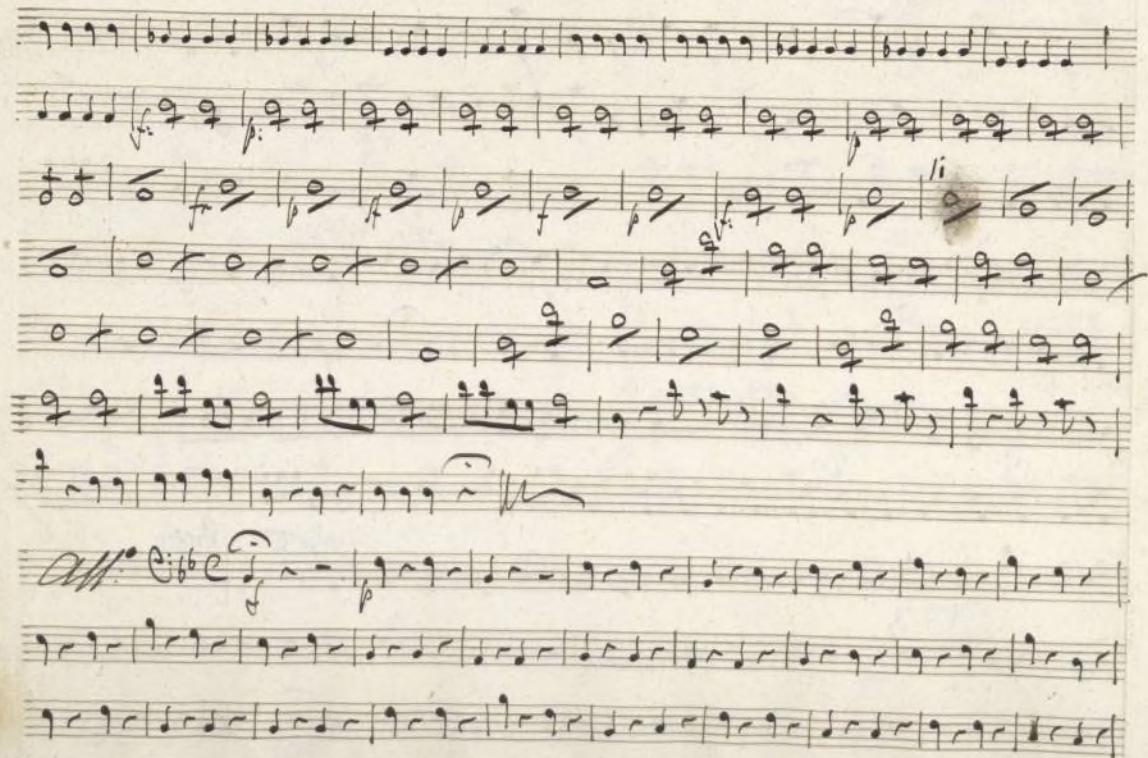 f: p:
p
fr p f p f p f: p li
All:º
f p